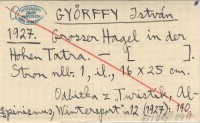 GYÖRFFY István
1927. Grosser Hagel in der
Hohen Tatra. — [ ].
Stron nlb. 1, il., 16 x 25 cm.
Odbitka z Turistik, Al-
pinismus, Wintersport nr 12 (1927): 190.